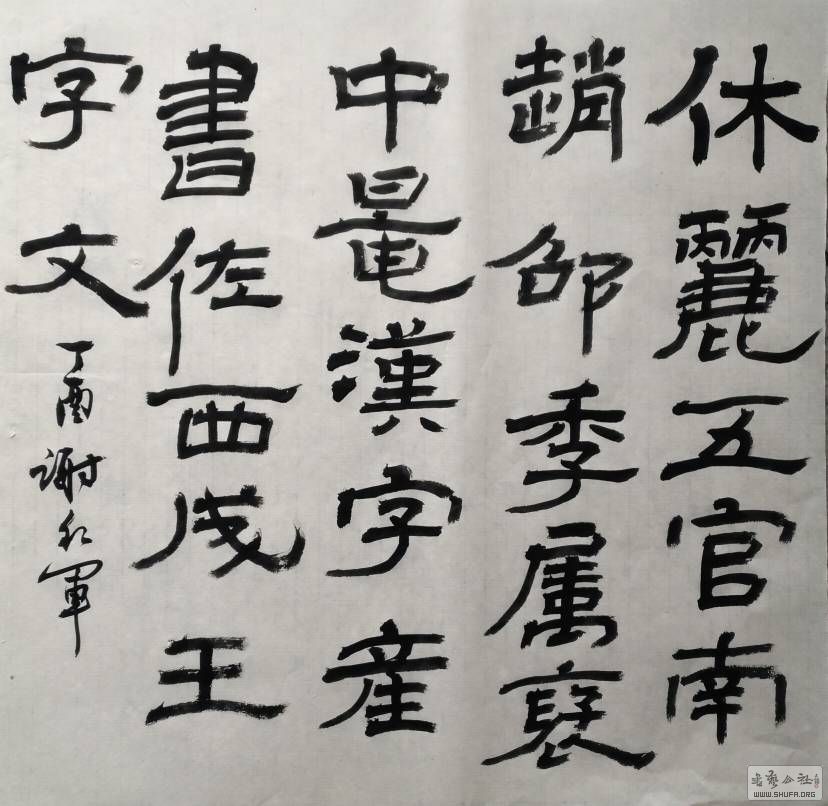 休麗五官南
趙邵季属褒
中鼂漢字産
書佐西成王
字文
丁酉謝红軍
書藝公社
WWW.SHUFA.ORG